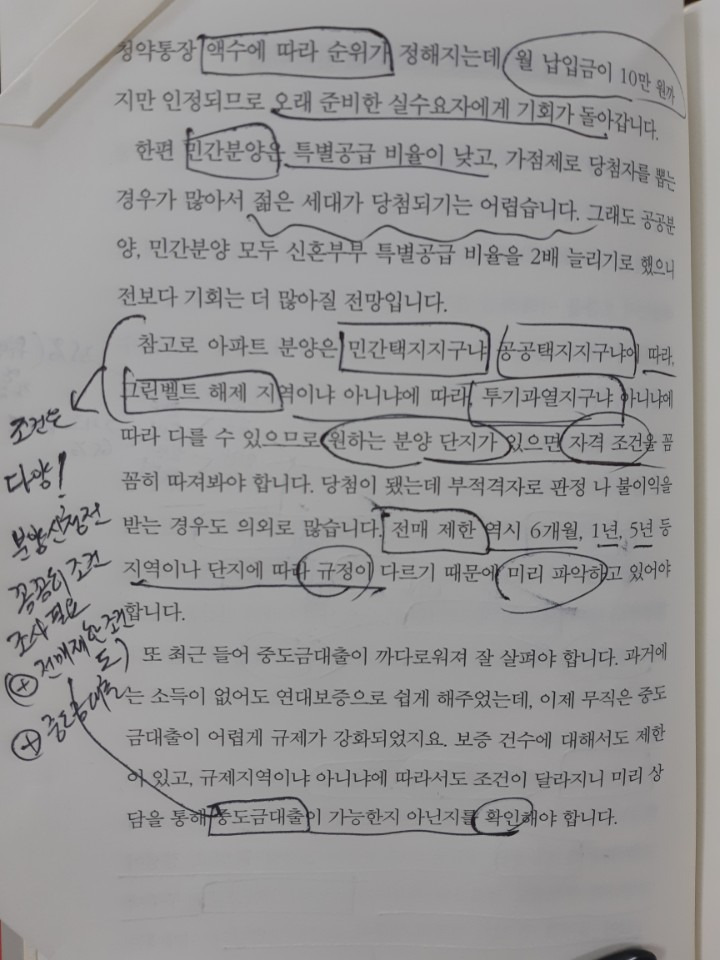 청약통장 액수에 따라 순위가 정해지는데, 월 납입금이 10만 원까
지만 인정되므로 오래 준비한 실수요자에게 기회가 돌아갑니다.
한편 민간분양은 특별공급 비율이 낮고, 가점제로 당첨자를 뽑는
경우가 많아서 젊은 세대가 당첨되기는 어렵습니다. 그래도 공공분
양, 민간분양 모두 신혼부부 특별공급 비율을 2배 늘리기로 했으니
전보다 기회는 더 많아질 전망입니다.
참고로 아파트 분양은 민간택지지구냐 공공택지지구냐에 따라,
그린벨트 해제 지역이냐 아니냐에 따라, 투기과열지구냐 아니냐에
따라 다를 수 있으므로 원하는 분양 단지가 있으면 자격 조건을 꼼
꼼히 따져봐야 합니다. 당첨이 됐는데 부적격자로 판정 나 불이익을
받는 경우도 의외로 많습니다. 전매 제한 역시 6개월, 1년, 5년 등
지역이나 단지에 따라 규정이 다르기 때문에 미리 파악하고 있어야
합니다.
또 최근 들어 중도금대출이 까다로워져 잘 살펴야 합니다. 과거에
는 소득이 없어도 연대보증으로 쉽게 해주었는데, 이제 무직은 중도
금대출이 어렵게 규제가 강화되었지요. 보증 건수에 대해서도 제한
이 있고, 규제지역이냐 아니냐에 따라서도 조건이 달라지니 미리 상
담을 통해 중도금대출이 가능한지 아닌지를 확인해야 합니다.
조건은
다양!
분양신청전
꼼꼼히 조건
조사 필요
⊕ 전매제한 조건
도)
⊕ 중도금대출